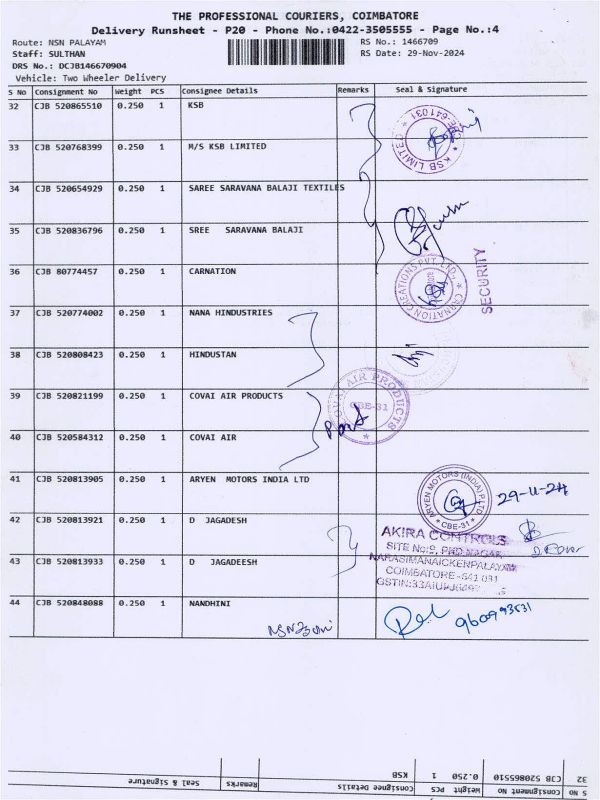 THE PROFESSIONAL COURIERS, COIMBATORE
Delivery Runsheet - P20 - Phone No.:0422-3505555 - Page No.:4
Route: NSN PALAYAM RS No.: 1466709
Staff: SULTHAN RS Date: 29-Nov-2024
DRS No.: DCJB146670904
Vehicle: Two Wheeler Delivery
S No Consignment No Weight PCS Consignee Details Remarks Seal & Signature
32 CJB 520865510 0.250 1 KSB
KSB LIMITED * CBE-641031 *
33 CJB 520768399 0.250 1 M/S KSB LIMITED
34 CJB 520654929 0.250 1 SAREE SARAVANA BALAJI TEXTILES
35 CJB 520836796 0.250 1 SREE SARAVANA BALAJI
36 CJB 80774457 0.250 1 CARNATION
CARNATION CREATIONS PVT. LTD.
SECURITY
37 CJB 520774002 0.250 1 NANA HINDUSTRIES
38 CJB 520808423 0.250 1 HINDUSTAN
39 CJB 520821199 0.250 1 COVAI AIR PRODUCTS
COVAI AIR PRODUCTS
CBE-31
40 CJB 520584312 0.250 1 COVAI AIR
41 CJB 520813905 0.250 1 ARYEN MOTORS INDIA LTD
ARYEN MOTORS (INDIA) P LTD
* CBE-31 *
29-11-24
42 CJB 520813921 0.250 1 D JAGADESH
AKIRA CONTROLS
SITE No:9, PKD NAGAR,
43 CJB 520813933 0.250 1 D JAGADEESH
NARASIMANAICKENPALAYAM
COIMBATORE-641 031
44 CJB 520848088 0.250 1 NANDHINI
32 CJB 520865510 0.250 1 KSB
S No Consignment No Weight PCS Consignee Details Remarks Seal & Signature